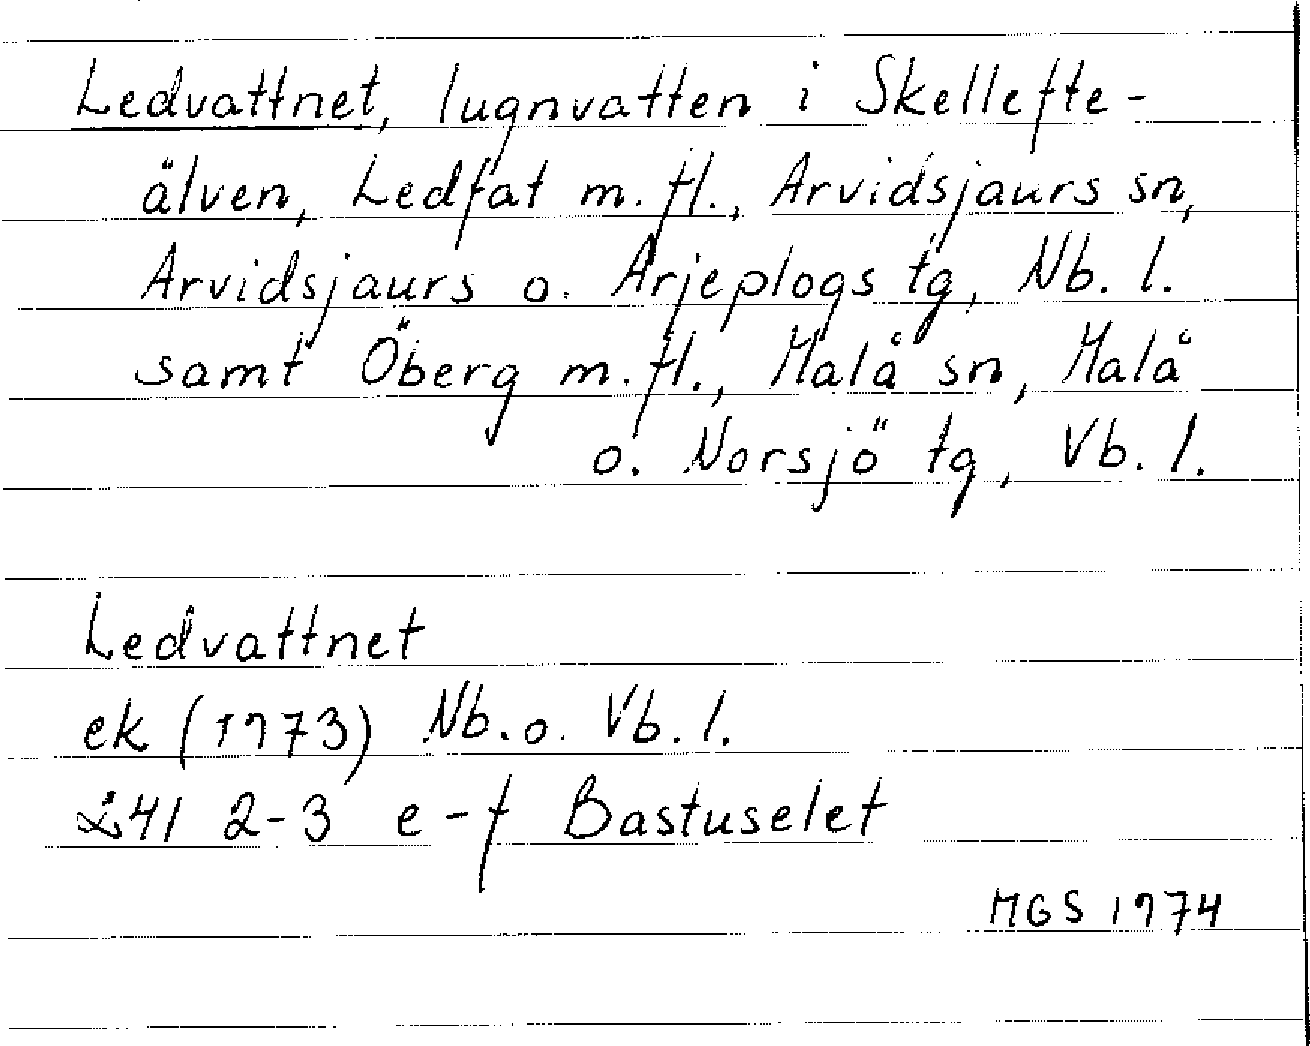 Ledvattnet, lugnvatten i Skellefte-
älven, Ledfat m. fl., Arvidsjaurs sn,
Arvidsjaurs o. Arjeplogs tg, Nb. l.
samt Öberg m. fl., Malå sn, Malå
o. Norsjö tg, Vb. l.
Ledvattnet
ek (1973) Nb. o. Vb. l.
241 2-3 e-f Bastuselet
MGS 1974